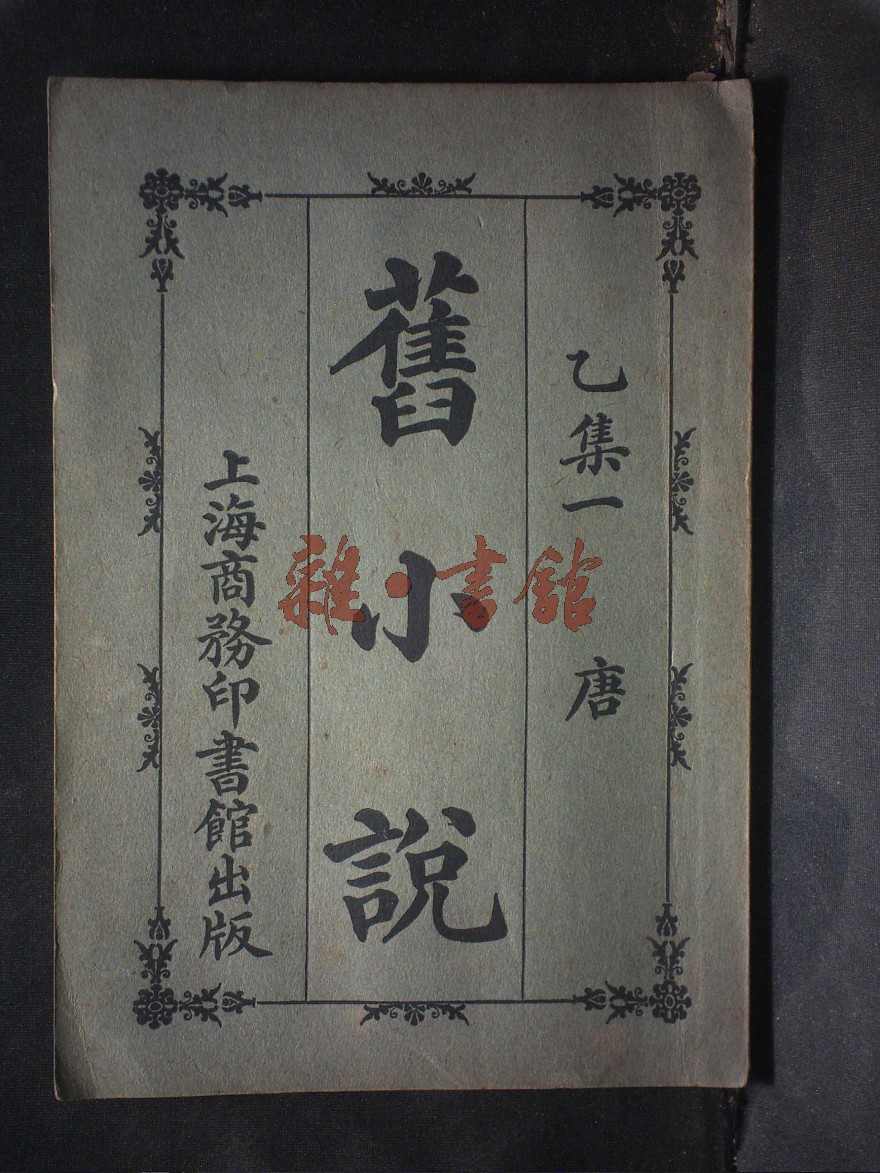 乙集一 唐
舊小說
上海商務印書館出版
雜·書館